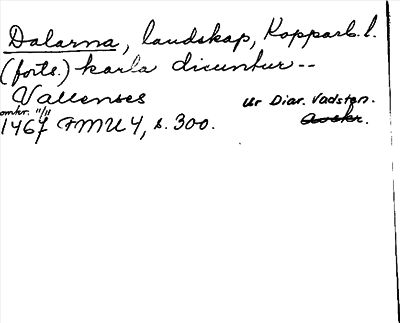 Dalarna, landskap, Kopparb. l.
(forts.) karla dicuntur --
Vallenses ur Diar. Vadsten.
omkr. "/11
1467 FMU 4, s. 300. Avskr.